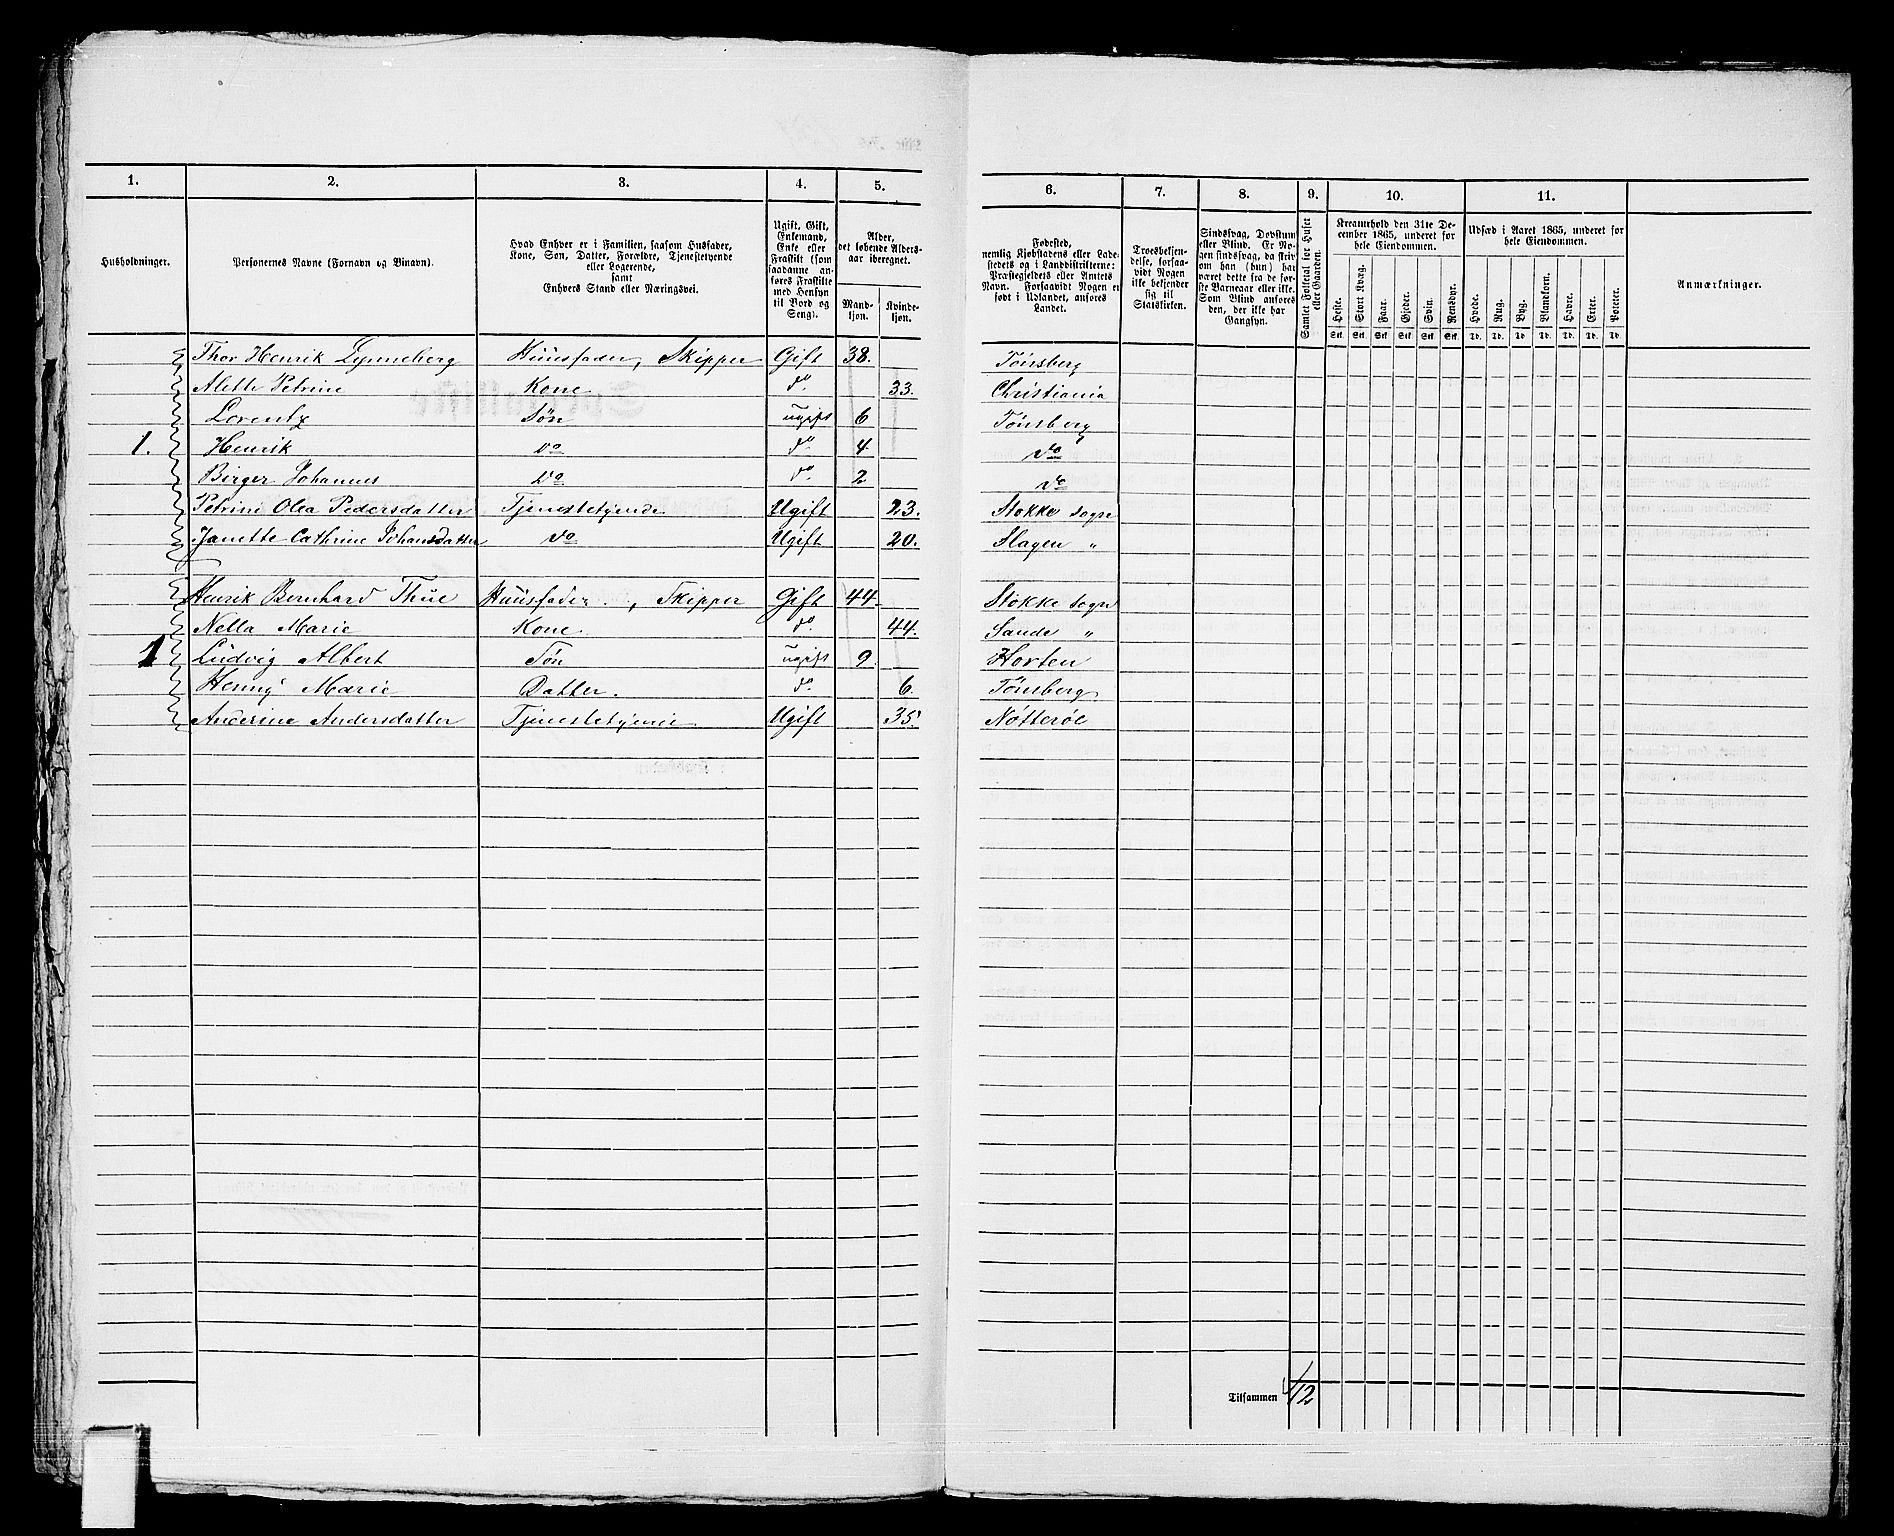 1. 2. 3. 4. 5. 6. 7. 8. 9. 10. 11.
Husholdninger.
Personernes Navne (Fornavn og Binavn).
Hvad Enhver er i Familien, saasom Husfader,
Kone, Søn, Datter, Forældre, Tjenestetyende
eller Logerende,
samt
Enhvers Stand eller Næringsvei.
Ugift, Gift,
Enkemand,
Enke eller
Fraskilt (som
saadanne an-
føres Fraskilte
med Hensyn
til Bord og
Seng).
Alder,
det løbende Alders-
aar iberegnet.
Mand-
kjøn.
Kvinde-
kjøn.
Fødested,
nemlig Kjøbstadens eller Lade-
stedets og i Landdistrikterne:
Præstegjeldets eller Amtets
Navn. Forsaavidt Nogen er
født i Udlandet, anføres
Landet.
Troesbekjen-
delse, forsaa-
vidt Nogen
ikke bekjender
sig til
Statskirken.
Sindssvag, Døvstum
eller Blind. Er No-
gen sindssvag, da skriv
om han (hun) har
været dette fra de før-
ste Barneaar eller ikke.
Som Blind anføres
den, der ikke har
Gangsyn.
Samlet Folketal for Huset
eller Gaarden.
Kreaturhold den 31te De-
cember 1865, underet for
hele Eiendommen.
Heste. Stort Kvæg. Faar. Gjeder. Svin. Rensdyr.
Stk. Stk. Stk. Stk. Stk. Stk.
Udsæd i Aaret 1865, underet for
hele Eiendommen.
Hvede. Rug. Byg. Blandkorn. Havre. Erter. Poteter.
Td. Td. Td. Td. Td. Td. Td.
Anmærkninger.
Thor Henrik Lynneberg Huusfader, Skipper Gift 38. Tönsberg
Alette Petrine Kone do. 33. Christiania
Lorentz Søn ugift 6 Tönsberg
1. Henrik Do do 4. do
Birger Johannes Do do. 2 do
Petrine Olea Pedersdatter Tjenestetyende Ugift 23. Stokke Sogn
Janette Cathrine Johansdatter do Ugift 20. Slagen "
Henrik Bernhard Thue Huusfader, Skipper Gift 44. Stokke Sogn
Nella Marie Kone do. 44. Sande "
1 Ludvig Albert Søn ugift 9 Horten
Henny Marie Datter. do. 6. Tönsberg
Andersine Andersdatter Tjenestetyende Ugift 35. Nötteröe
Tilsammen 12